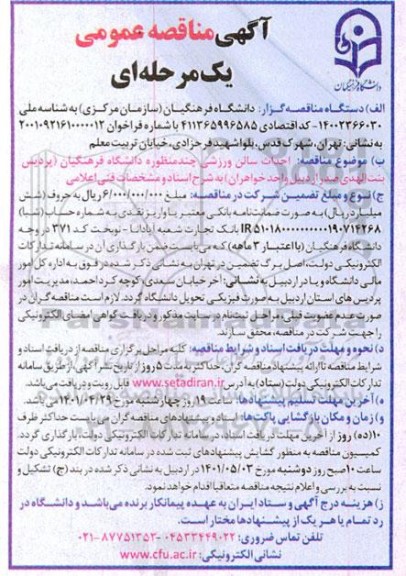 آگهی مناقصه عمومی
یک مرحله‌ای
دانشگاه فرهنگیان
الف) دستگاه مناقصه گزار: دانشگاه فرهنگیان (سازمان مرکزی) به شناسه ملی
۱۴۰۰۲۳۶۶۰۳۰- کد اقتصادی ۴۱۱۳۶۵۹۹۶۵۸۵ با شماره فراخوان ۲۰۰۱۰۹۲۱۶۱۰۰۰۰۱۲
به نشانی: تهران، شهرک قدس، بلوار شهید فرحزادی، خیابان تربیت معلم
ب) موضوع مناقصه: احداث سالن ورزشی چند منظوره دانشگاه فرهنگیان (پردیس
بنت الهدی صدر اردبیل واحد خواهران) به شرح اسناد و مشخصات فنی اعلامی
ج) نوع و مبلغ تضمین شرکت در مناقصه: مبلغ ۶/۰۰۰/۰۰۰/۰۰۰ ریال به حروف (شش
میلیارد ریال) به صورت ضمانتنامه بانکی معتبر یا واریز نقدی به شماره حساب (شبا)
بانک تجارت شعبه آپادانا - نوبخت کد ۳۷۱ در وجه
دانشگاه فرهنگیان (با اعتبار ۳ ماهه) که می‌بایست ضمن بارگذاری آن در سامانه تدارکات
الکترونیکی دولت، اصل برگ تضمین در تهران به نشانی ذکر شده در فوق به اداره کل امور
مالی دانشگاه و یا در اردبیل به نشانی: آخر خیابان سعدی، کوچه کرد احمد، مدیریت امور
پردیس های استان اردبیل به صورت فیزیکی تحویل دانشگاه گردد. لازم است مناقصه گران در
صورت عدم عضویت قبلی، مراحل ثبت نام در سایت مذکور و دریافت گواهی امضای الکترونیکی
را جهت شرکت در مناقصه، محقق سازند.
د) نحوه و مهلت دریافت اسناد و شرایط مناقصه: کلیه مراحل برگزاری مناقصه از دریافت اسناد و
شرایط مناقصه تا ارائه پیشنهاد مناقصه گران، حداکثر به مدت ۵ روز از تاریخ نشر آگهی، از طریق سامانه
تدارکات الکترونیکی دولت (ستاد) به آدرس www.setadiran.ir قابل رویت و دریافت می‌باشد.
ه) آخرین مهلت تسلیم پیشنهادها: ساعت ۱۹ روز چهارشنبه مورخ ۱۴۰۱/۰۴/۲۹
و) زمان و مکان بازگشایی پاکت‌ها: اسناد و پیشنهادهای مناقصه گران می‌بایست حداکثر ظرف
۱۰ (ده) روز از آخرین مهلت دریافت اسناد، در سامانه تدارکات الکترونیکی دولت، بارگذاری گردد.
کمیسیون مناقصه به منظور گشایش پیشنهادهای ثبت شده در سامانه تدارکات الکترونیکی دولت
ساعت ۱۰ صبح روز دوشنبه مورخ ۱۴۰۱/۰۵/۰۳ در اردبیل به نشانی ذکر شده در بند (ج) تشکیل و
نسبت به بررسی و اعلام نتیجه مناقصه متعاقبا اقدام خواهد نمود.
ز) هزینه درج آگهی و ستاد ایران به عهده پیمانکار برنده می‌باشد و دانشگاه در
رد تمام یا هر یک از پیشنهادها مختار است.
تلفن تماس ضروری: ۰۴۵۳۳۴۴۹۰۲۲ - ۰۲۱-۸۷۷۵۱۳۵۳
نشانی الکترونیکی: www.cfu.ac.ir